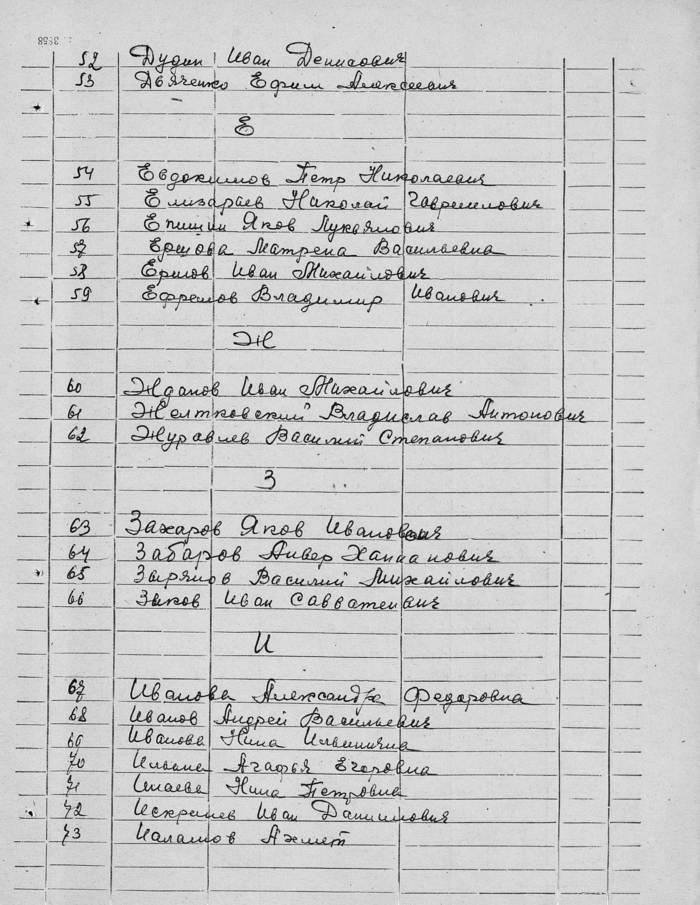 3858
52 Дудин Иван Денисович
53 Дьяченко Ефим Алексеевич
Е
54 Евдокимов Петр Николаевич
55 Елизараев Николай Гаврилович
56 Епишин Яков Лукаянович
57 Ершова Матрена Васильевна
58 Ершов Иван Михайлович
59 Ефремов Владимир Иванович
Ж
60 Жданов Иван Михайлович
61 Желтковский Владислав Антонович
62 Журавлев Василий Степанович
З
63 Захаров Яков Иванович
64 Забаров Анвер Ханнанович
65 Зырянов Василий Михайлович
66 Зыков Иван Савватеевич
И
67 Иванова Александра Федаровна
68 Иванов Андрей Васильевич
69 Иванова Нина Ильинична
70 Агафья Егоровна
71 Нина Петровна
72 Иван Данилович
73 Ахмет